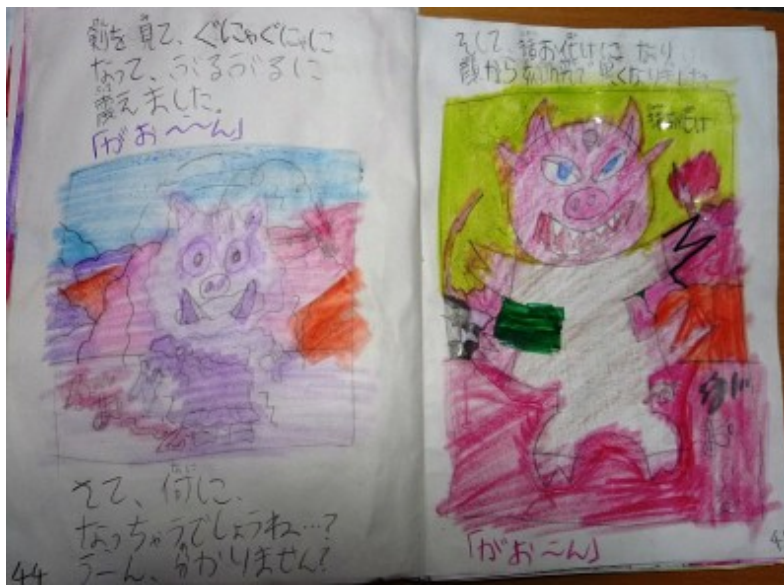 剣を見て、ぐにゃぐにゃに
なって、ぶるぶるに
震えました。
「がお〜〜ん」
さて、何に、
なっちゃうでしょうね…?
うーん、分かりません?
44
そして、お化けになり
顔から
くなりました。
お化け
「がお〜ん」
4